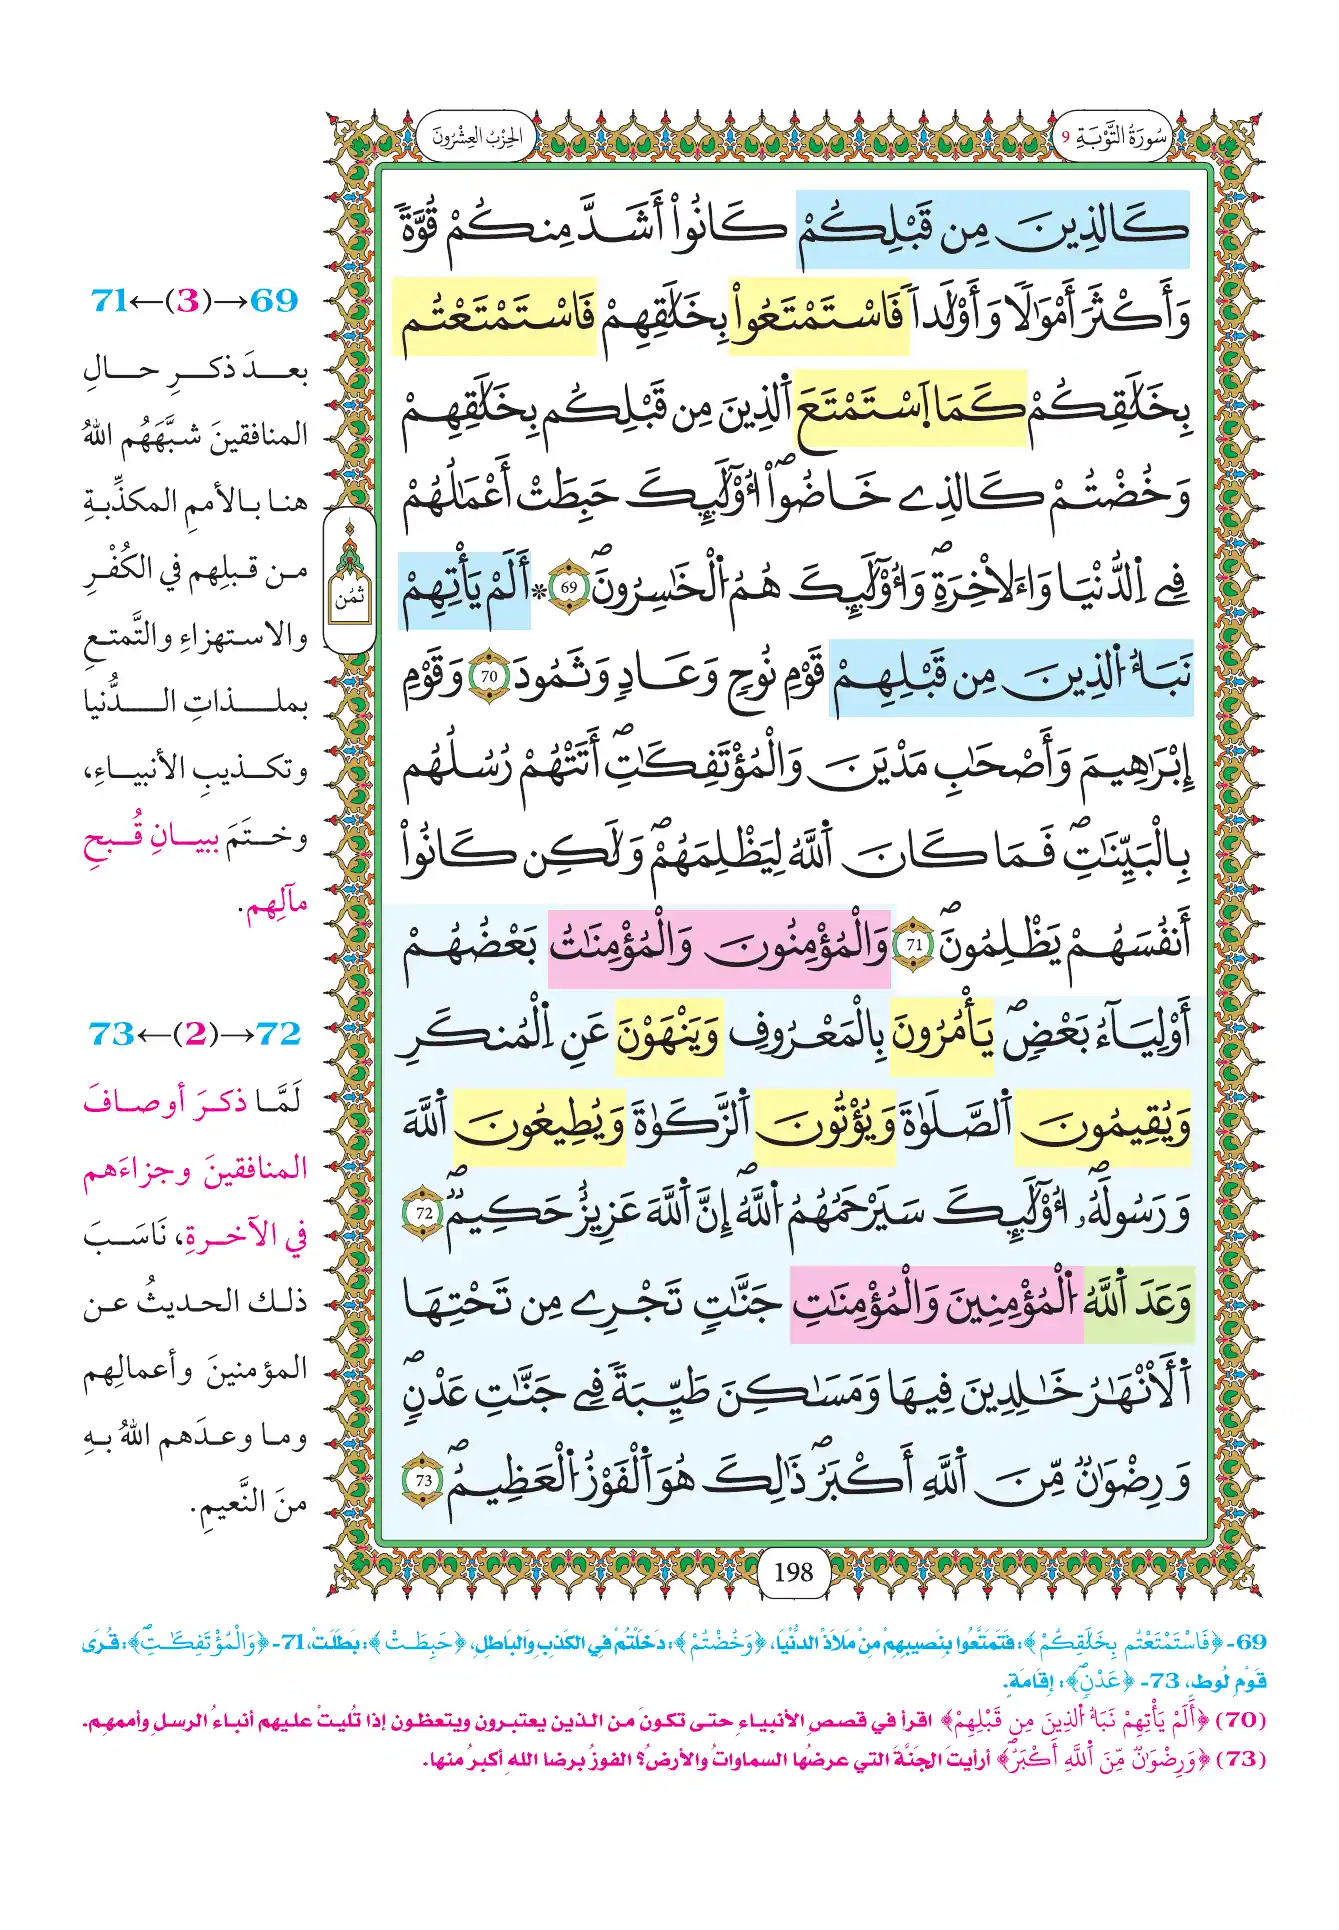 سُورَةُ التَّوْبَةِ 9
الحِزْبُ العِشْرُونَ
كَالذِينَ مِن قَبْلِكُمْ كَانُوٓاْ أَشَدَّ مِنكُمْ قُوَّةٗ
وَأَكْثَرَ أَمْوَٰلاٗ وَأَوْلَٰداٗ فَاسْتَمْتَعُواْ بِخَلَٰقِهِمْ فَاسْتَمْتَعْتُم
بِخَلَٰقِكُمْ كَمَا اَ۪سْتَمْتَعَ اَ۬لذِينَ مِن قَبْلِكُم بِخَلَٰقِهِمْ
وَخُضْتُمْ كَالذِے خَاضُوٓاْۖ أُوْلَٰٓئِكَ حَبِطَتْ أَعْمَٰلُهُمْ
فِے اِ۬لدُّنْيَا وَالَاخِرَةِۖ وَأُوْلَٰٓئِكَ هُمُ اُ۬لْخَٰسِرُونَۖ 69 ۞ أَلَمْ يَأْتِهِمْ
نَبَأُ اُ۬لذِينَ مِن قَبْلِهِمْ قَوْمِ نُوحٖ وَعَادٖ وَثَمُودَ 70 وَقَوْمِ
إِبْرَٰهِيمَ وَأَصْحَٰبِ مَدْيَنَ وَالْمُؤْتَفِكَٰتِۖ أَتَتْهُمْ رُسُلُهُم
بِالْبَيِّنَٰتِۖ فَمَا كَانَ اَ۬للَّهُ لِيَظْلِمَهُمْۖ وَلَٰكِن كَانُوٓاْ
أَنفُسَهُمْ يَظْلِمُونَۖ 71 وَالْمُؤْمِنُونَ وَالْمُؤْمِنَٰتُ بَعْضُهُمْ
أَوْلِيَآءُ بَعْضٖۖ يَأْمُرُونَ بِالْمَعْرُوفِ وَيَنْهَوْنَ عَنِ اِ۬لْمُنكَرِ
وَيُقِيمُونَ اَ۬لصَّلَوٰةَ وَيُؤْتُونَ اَ۬لزَّكَوٰةَ وَيُطِيعُونَ اَ۬للَّهَ
وَرَسُولَهُۥٓۖ أُوْلَٰٓئِكَ سَيَرْحَمُهُمُ اُ۬للَّهُۖ إِنَّ اَ۬للَّهَ عَزِيزٌ حَكِيمٞۖ 72
وَعَدَ اَ۬للَّهُ اُ۬لْمُؤْمِنِينَ وَالْمُؤْمِنَٰتِ جَنَّٰتٖ تَجْرِے مِن تَحْتِهَا
اَ۬لَانْهَٰرُ خَٰلِدِينَ فِيهَا وَمَسَٰكِنَ طَيِّبَةٗ فِے جَنَّٰتِ عَدْنٖۖ
وَرِضْوَٰنٞ مِّنَ اَ۬للَّهِ أَكْبَرُۖ ذَٰلِكَ هُوَ اَ۬لْفَوْزُ اُ۬لْعَظِيمُۖ 73
ثُمُن
69→(3)←71
بعـدَ ذكـرِ حـالِ
المنافقينَ شبَّهَهُم اللهُ
هنا بالأممِ المكذِّبةِ
من قبلِهم في الكُفْرِ
والاستهزاءِ والتَّمتعِ
بملذاتِ الدُّنيا
وتكذيبِ الأنبياءِ،
وختَمَ ببيانِ قُبحِ
مآلِهم.
72→(2)←73
لَمَّا ذكرَ أوصافَ
المنافقينَ وجزاءَهم
في الآخرةِ، نَاسَبَ
ذلك الحديثُ عن
المؤمنينَ وأعمالِهم
وما وعدَهم اللهُ بهِ
منَ النَّعيمِ.
198
69- ﴿فَاسْتَمْتَعْتُم بِخَلَٰقِكُمْ﴾: فَتَمَتَّعُوا بِنَصِيبِهِمْ مِنْ مَلَاذِّ الدُّنْيَا، ﴿وَخُضْتُمْ﴾: دَخَلْتُمْ فِي الكَذِبِ وَالبَاطِلِ، ﴿حَبِطَتْ﴾: بَطَلَتْ، 71- ﴿وَالْمُؤْتَفِكَٰتِۖ﴾: قُرَى
قَوْمِ لُوطٍ، 73- ﴿عَدْنٖۖ﴾: إِقَامَةٍ.
(70) ﴿أَلَمْ يَأْتِهِمْ نَبَأُ اُ۬لذِينَ مِن قَبْلِهِمْ﴾ اقرأ في قصصِ الأنبياءِ حتى تكونَ من الذين يعتبرون ويتعظون إذا تُليتْ عليهم أنباءُ الرسلِ وأممهم.
(73) ﴿وَرِضْوَٰنٞ مِّنَ اَ۬للَّهِ أَكْبَرُۖ﴾ أرأيتَ الجَنَّةَ التي عرضُها السماواتُ والأرضُ؟ الفوزُ برضا اللهِ أكبرُ منها.